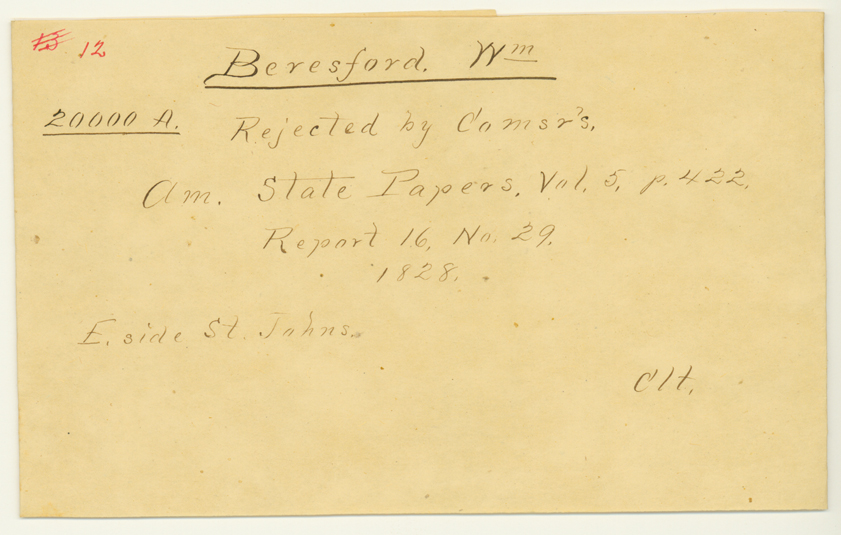 12
Beresford. Wm
20000 A. Rejected by Comsr's.
Am. State Papers, Vol. 5, p. 422.
Report 16, No. 29.
1828.
E. side St. Johns.
Clt.